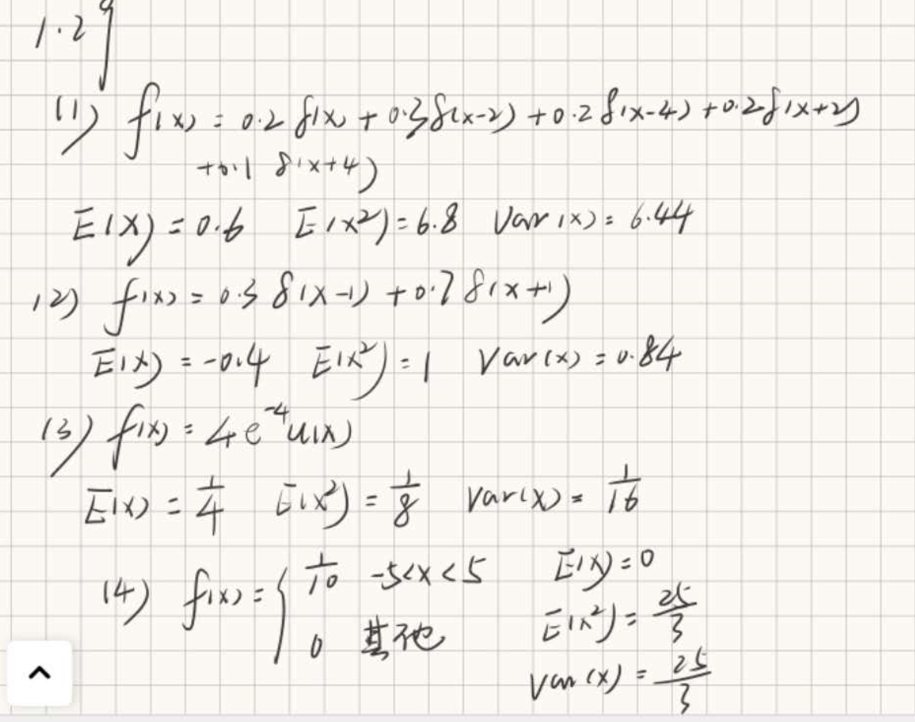 1.29
(1) f(x) = 0.2 δ(x) + 0.3δ(x-2) + 0.2 δ(x-4) + 0.2δ(x+2)
+0.1 δ(x+4)
E(X) = 0.6 E(x²) = 6.8 Var(x) = 6.44
(2) f(x) = 0.3 δ(x-1) + 0.7 δ(x+1)
E(X) = -0.4 E(x²) = 1 Var(x) = 0.84
(3) f(x) = 4e⁻⁴u(x)
E(x) = 1/4 E(x²) = 1/8 Var(x) = 1/16
(4) f(x) = { 1/10 -5<x<5 E(X) = 0
0 其他 E(x²) = 25/3
Var(x) = 25/3